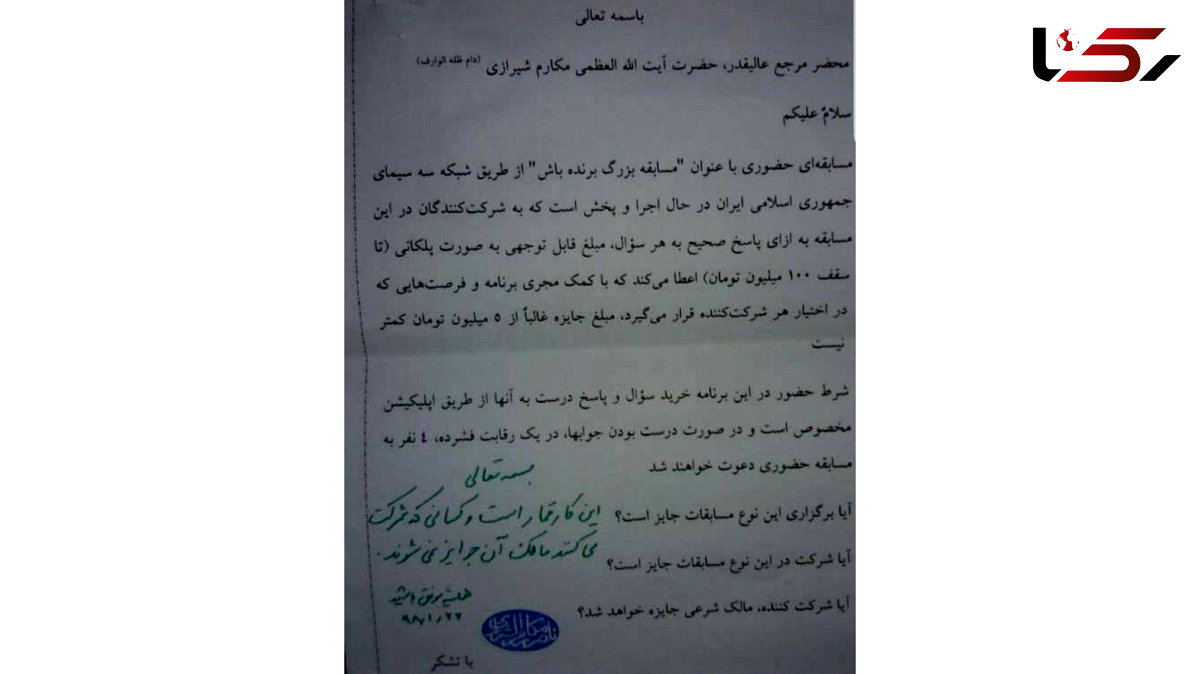 رکنا
باسمه تعالی
محضر مرجع عالیقدر، حضرت آیت الله العظمی مکارم شیرازی (دام ظله الوارف)
سلامٌ علیکم
مسابقه‌ای حضوری با عنوان "مسابقه بزرگ برنده باش" از طریق شبکه سه سیمای
جمهوری اسلامی ایران در حال اجرا و پخش است که به شرکت‌کنندگان در این
مسابقه به ازای پاسخ صحیح به هر سؤال، مبلغ قابل توجهی به صورت پلکانی (تا
سقف ۱۰۰ میلیون تومان) اعطا می‌کند که با کمک مجری برنامه و فرصت‌هایی که
در اختیار هر شرکت‌کننده قرار می‌گیرد، مبلغ جایزه غالباً از ۵ میلیون تومان کمتر
نیست
شرط حضور در این برنامه خرید سؤال و پاسخ درست به آنها از طریق اپلیکیشن
مخصوص است و در صورت درست بودن جوابها، در یک رقابت فشرده، ٤ نفر به
مسابقه حضوری دعوت خواهند شد
بسمه تعالی
آیا برگزاری این نوع مسابقات جایز است؟
این کار قمار است و کسانی که شرکت
آیا شرکت در این نوع مسابقات جایز است؟
می کنند مالک آن جوایز نمی شوند.
آیا شرکت کننده، مالک شرعی جایزه خواهد شد؟
همیشه موفق باشید
۹۸/۱/۲۷
با تشکر